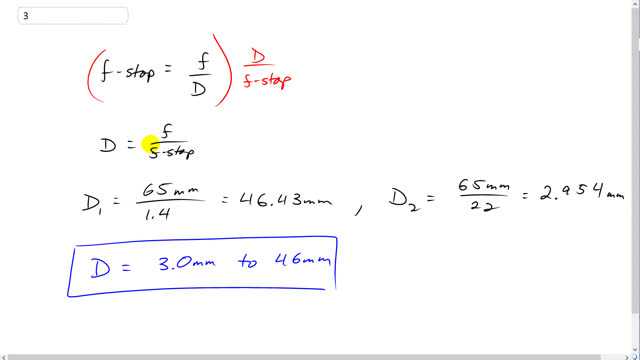 3
(f-stop = f/D) D/f-stop
D = f/f-stop
D₁ = 65mm/1.4 = 46.43mm , D₂ = 65mm/22 = 2.954mm
D = 3.0mm to 46mm